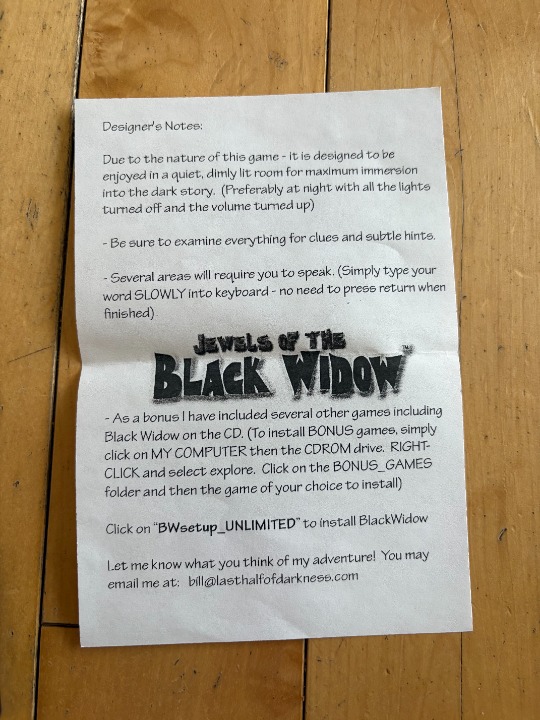 Designer's Notes:
Due to the nature of this game - it is designed to be
enjoyed in a quiet, dimly lit room for maximum immersion
into the dark story. (Preferably at night with all the lights
turned off and the volume turned up)
- Be sure to examine everything for clues and subtle hints.
- Several areas will require you to speak. (Simply type your
word SLOWLY into keyboard - no need to press return when
finished)
JEWELS OF THE
BLACK WIDOW™
- As a bonus I have included several other games including
Black Widow on the CD. (To install BONUS games, simply
click on MY COMPUTER then the CDROM drive. RIGHT-
CLICK and select explore. Click on the BONUS_GAMES
folder and then the game of your choice to install)
Click on "BWsetup_UNLIMITED" to install BlackWidow
Let me know what you think of my adventure! You may
email me at: bill@lasthalfofdarkness.com